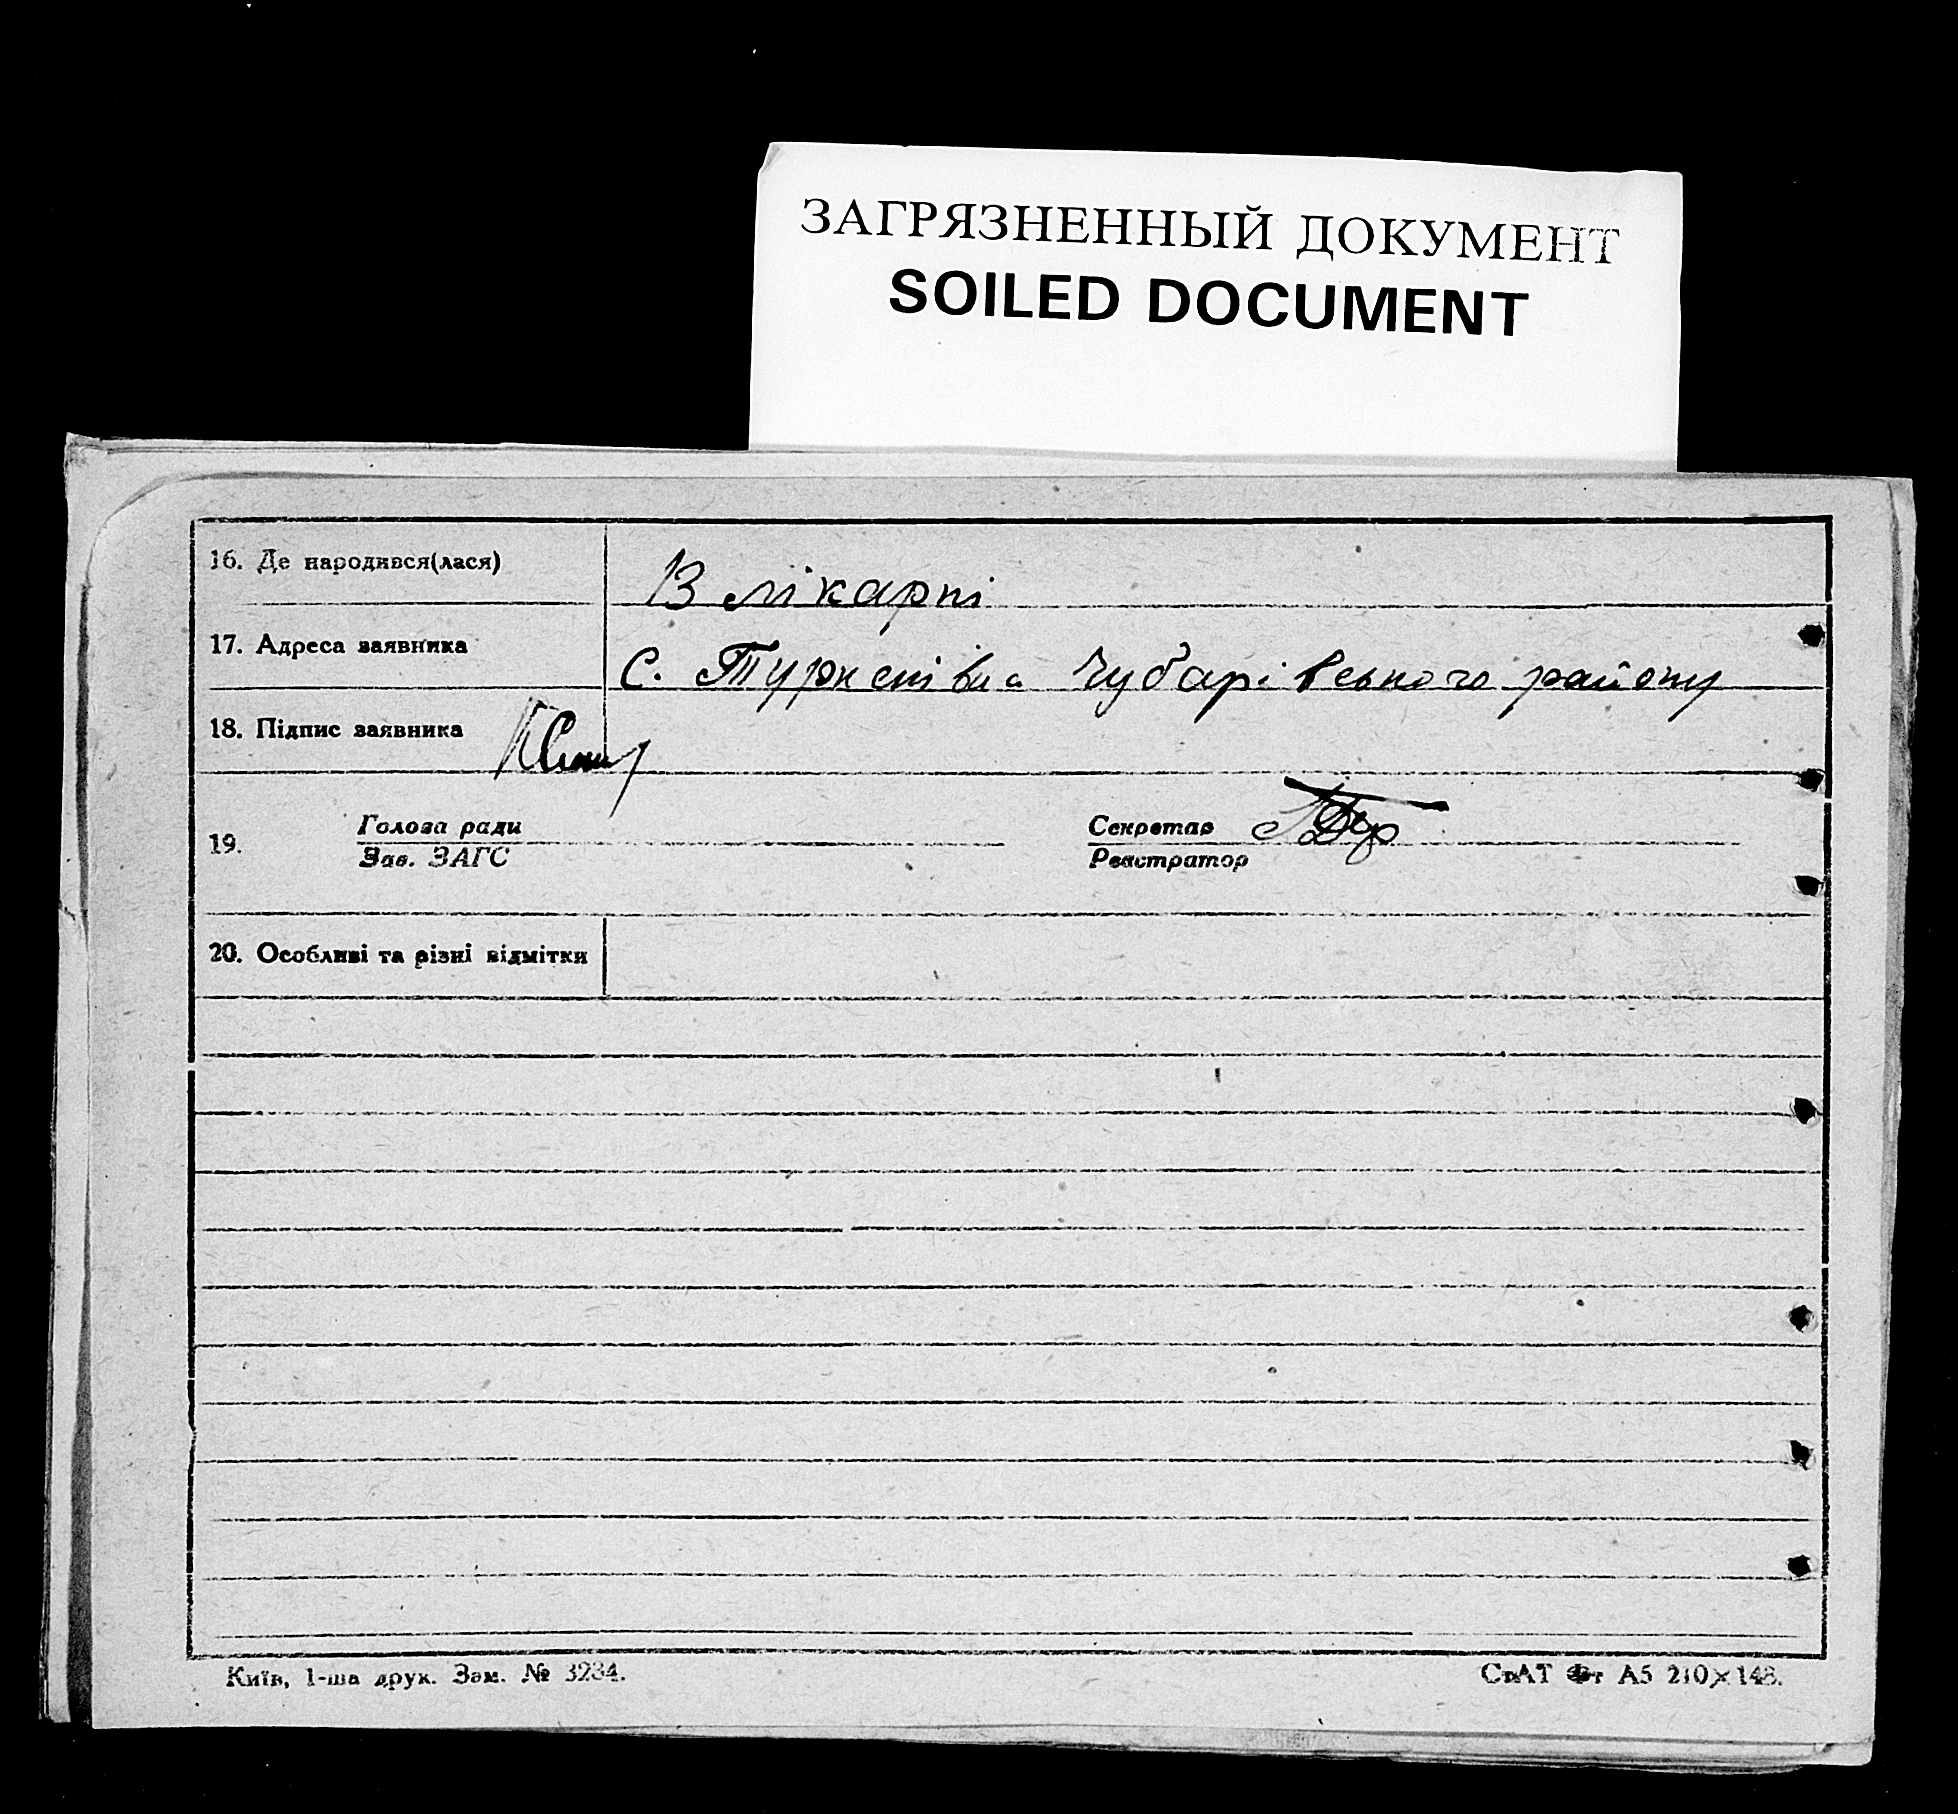 ЗАГРЯЗНЕННЫЙ ДОКУМЕНТ
SOILED DOCUMENT
16. Де народився(лася) В лікарні
17. Адреса заявника с. Туркенівка Чубарівського району
18. Підпис заявника
19. Голова ради Секретар
Зав. ЗАГС Реєстратор
20. Особливі та різні відмітки
Київ, 1-ша друк. Зам. № 3234. СтАТ Фт А5 210×148.